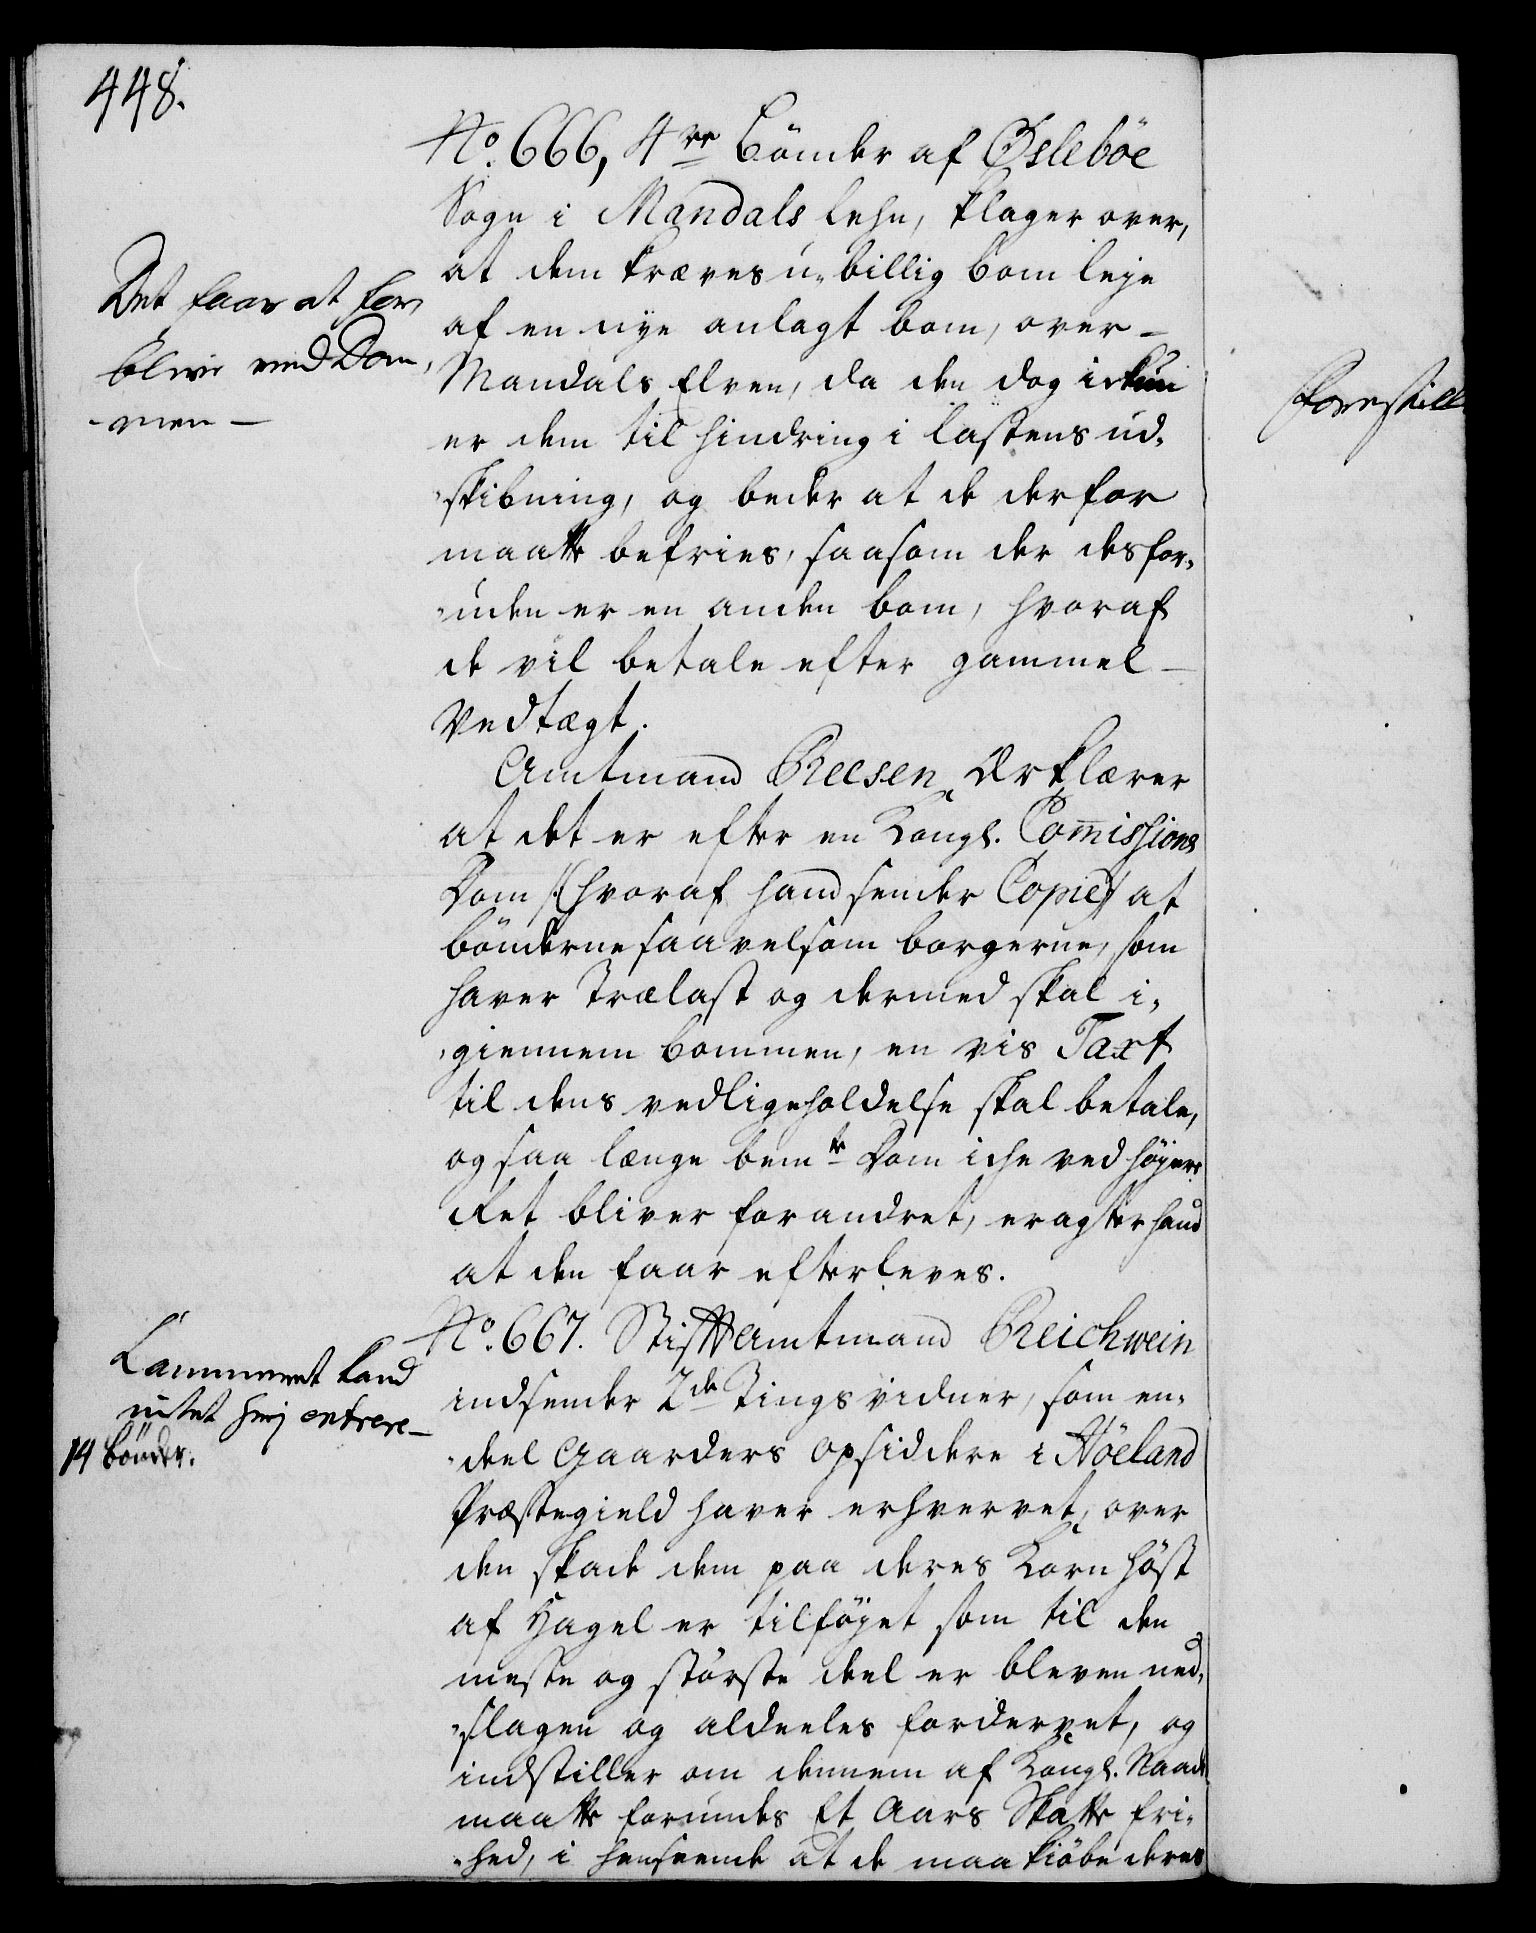 448.
No. 666, 4re Bönder af Øslebøe
Sogn i Mandals Lehn, klager over,
at dem kræves u-billig bom leje
af en nye anlagt bom, over-
Mandals Elven, da den dog ickun
er dem til hindring i lastens ud-
skibning, og beder at de derfor
maatte befries, saasom der desfor-
uden er en anden bom, hvoraf
de vil betale efter gammel
Vedtægt.
Det faar at for-
blive med Dom-
men -
Amtmand Reesen Erklærer
at det er efter en Kongl. Comissions
Dom /: hvoraf hand sender Copie :/ at
bönderne saavelsom borgerne, som
haver Trælast og dermed skal i-
giennem bommen, en vis Taxt
til dens vedligeholdelse skal betale,
og saa længe bemte Dom iche ved høyere
Ret bliver forandret, eragter hand
at den faar efterleves.
No. 667. Stifftamtmand Reichwein
indsender 2de Tings vidner, som en-
deel Gaarders opsiddere i Höeland
Præstegield haver erhvervet, over
den skade dem paa deres Korn høst
af Hagel er tilføjet som til den
meste og störste deel er bleven ned-
slagen og aldeeles fordervet, og
indstiller om dennem af Kongl. Naade
maatte forundes Et Aars Skatte fri-
hed, i henseende at de maa kiöbe deres
Cammeret kand
intet herj
14 bönder.
Forestill